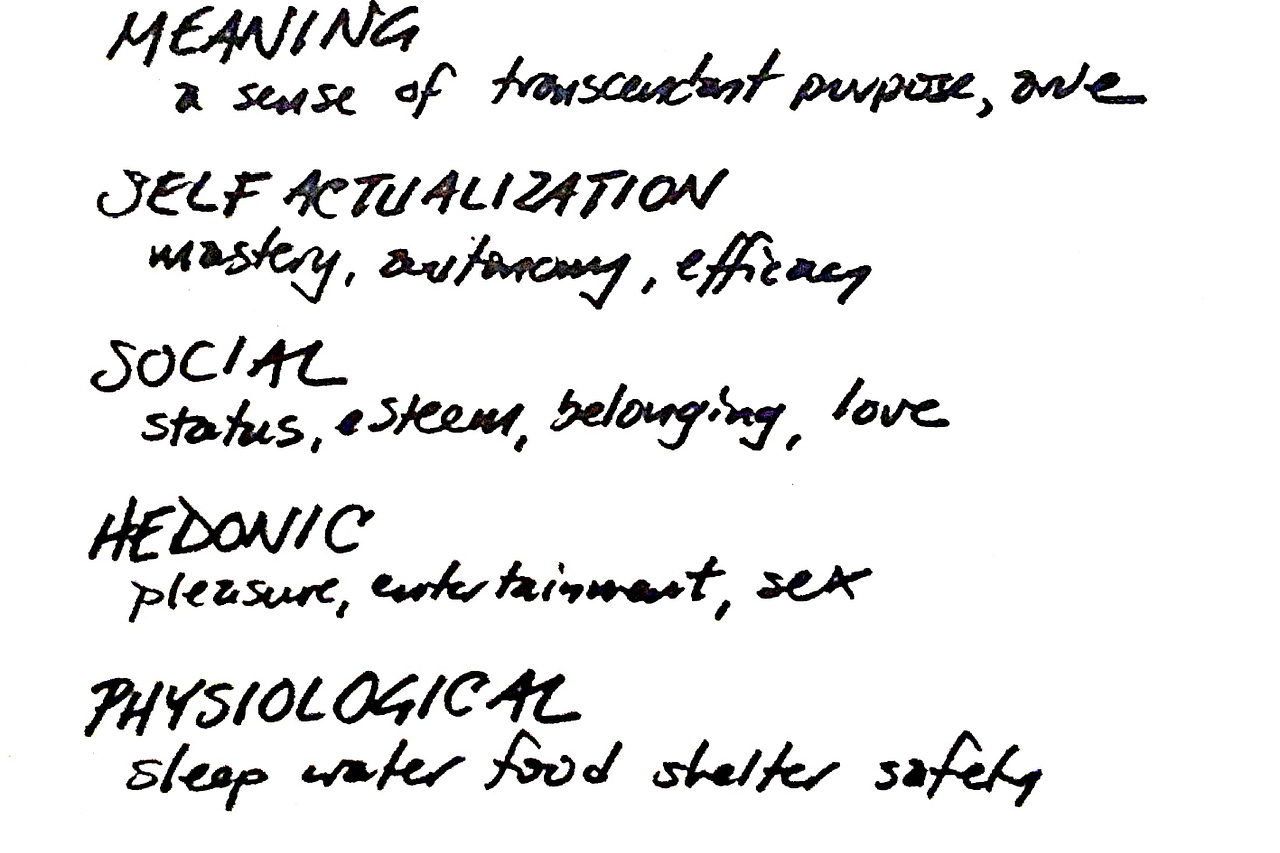 MEANING
a sense of transcendant purpose, awe
SELF ACTUALIZATION
mastery, autonomy, efficacy
SOCIAL
status, esteem, belonging, love
HEDONIC
pleasure, entertainment, sex
PHYSIOLOGICAL
sleep water food shelter safety